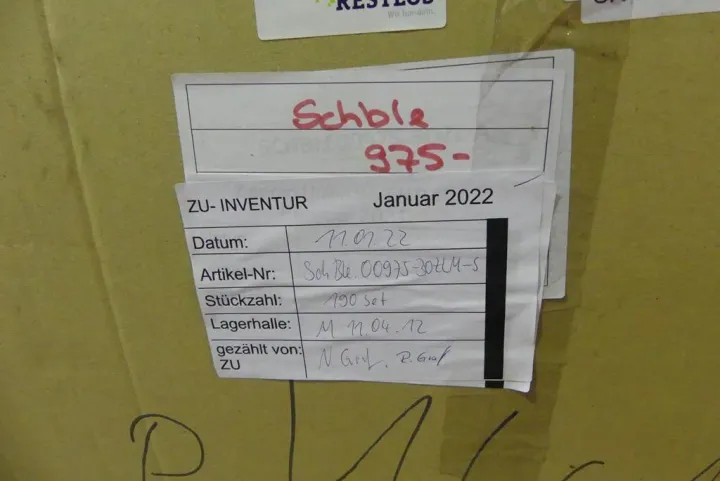 RESTLOS
Schble
975-
ZU- INVENTUR Januar 2022
Datum: 11.01.22
Artikel-Nr: SchBle.00975-30ZLM-S
Stückzahl: 190 Set
Lagerhalle: M 11.04.12
gezählt von: N Graf, R. Graf
ZU